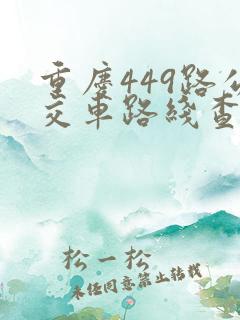 重庆449路公
交车路线查
松一松
未经同意禁止转载